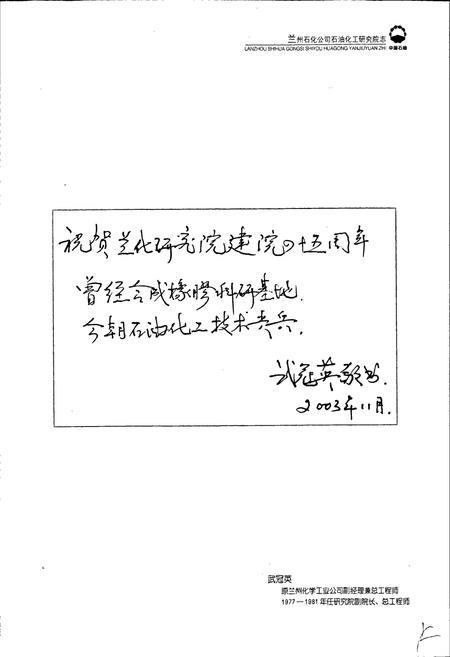 兰州石化公司石油化工研究院志
LANZHOU SHIHUA GONGSI SHIYOU HUAGONG YANJIUYUAN ZHI
中国石油
祝贺兰化研究院建院四十五周年
曾经合成橡膠科研基地.
今朝石油化工技术尖兵.
武冠英敬书.
2003年11月.
武冠英
原兰州化学工业公司副经理兼总工程师
1977—1981年任研究院副院长、总工程师